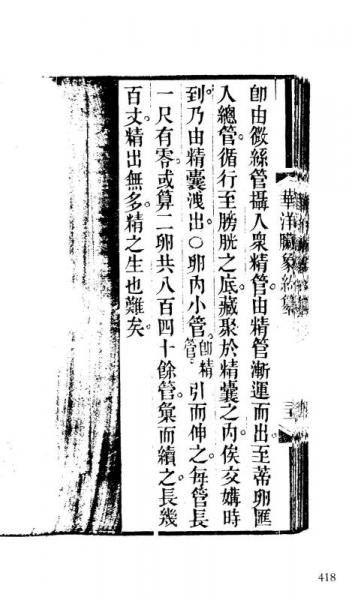 華洋臟象約纂
卽由微絲管攝入衆精管由精管漸運而出至蒂卵匯
入總管循行至膀胱之底藏聚於精囊之內俟交媾時
到乃由精囊洩出〇卵內小管卽精管引而伸之每管長
一尺有零或算二卵共八百四十餘管彙而續之長幾
百丈精出無多精之生也難矣
418